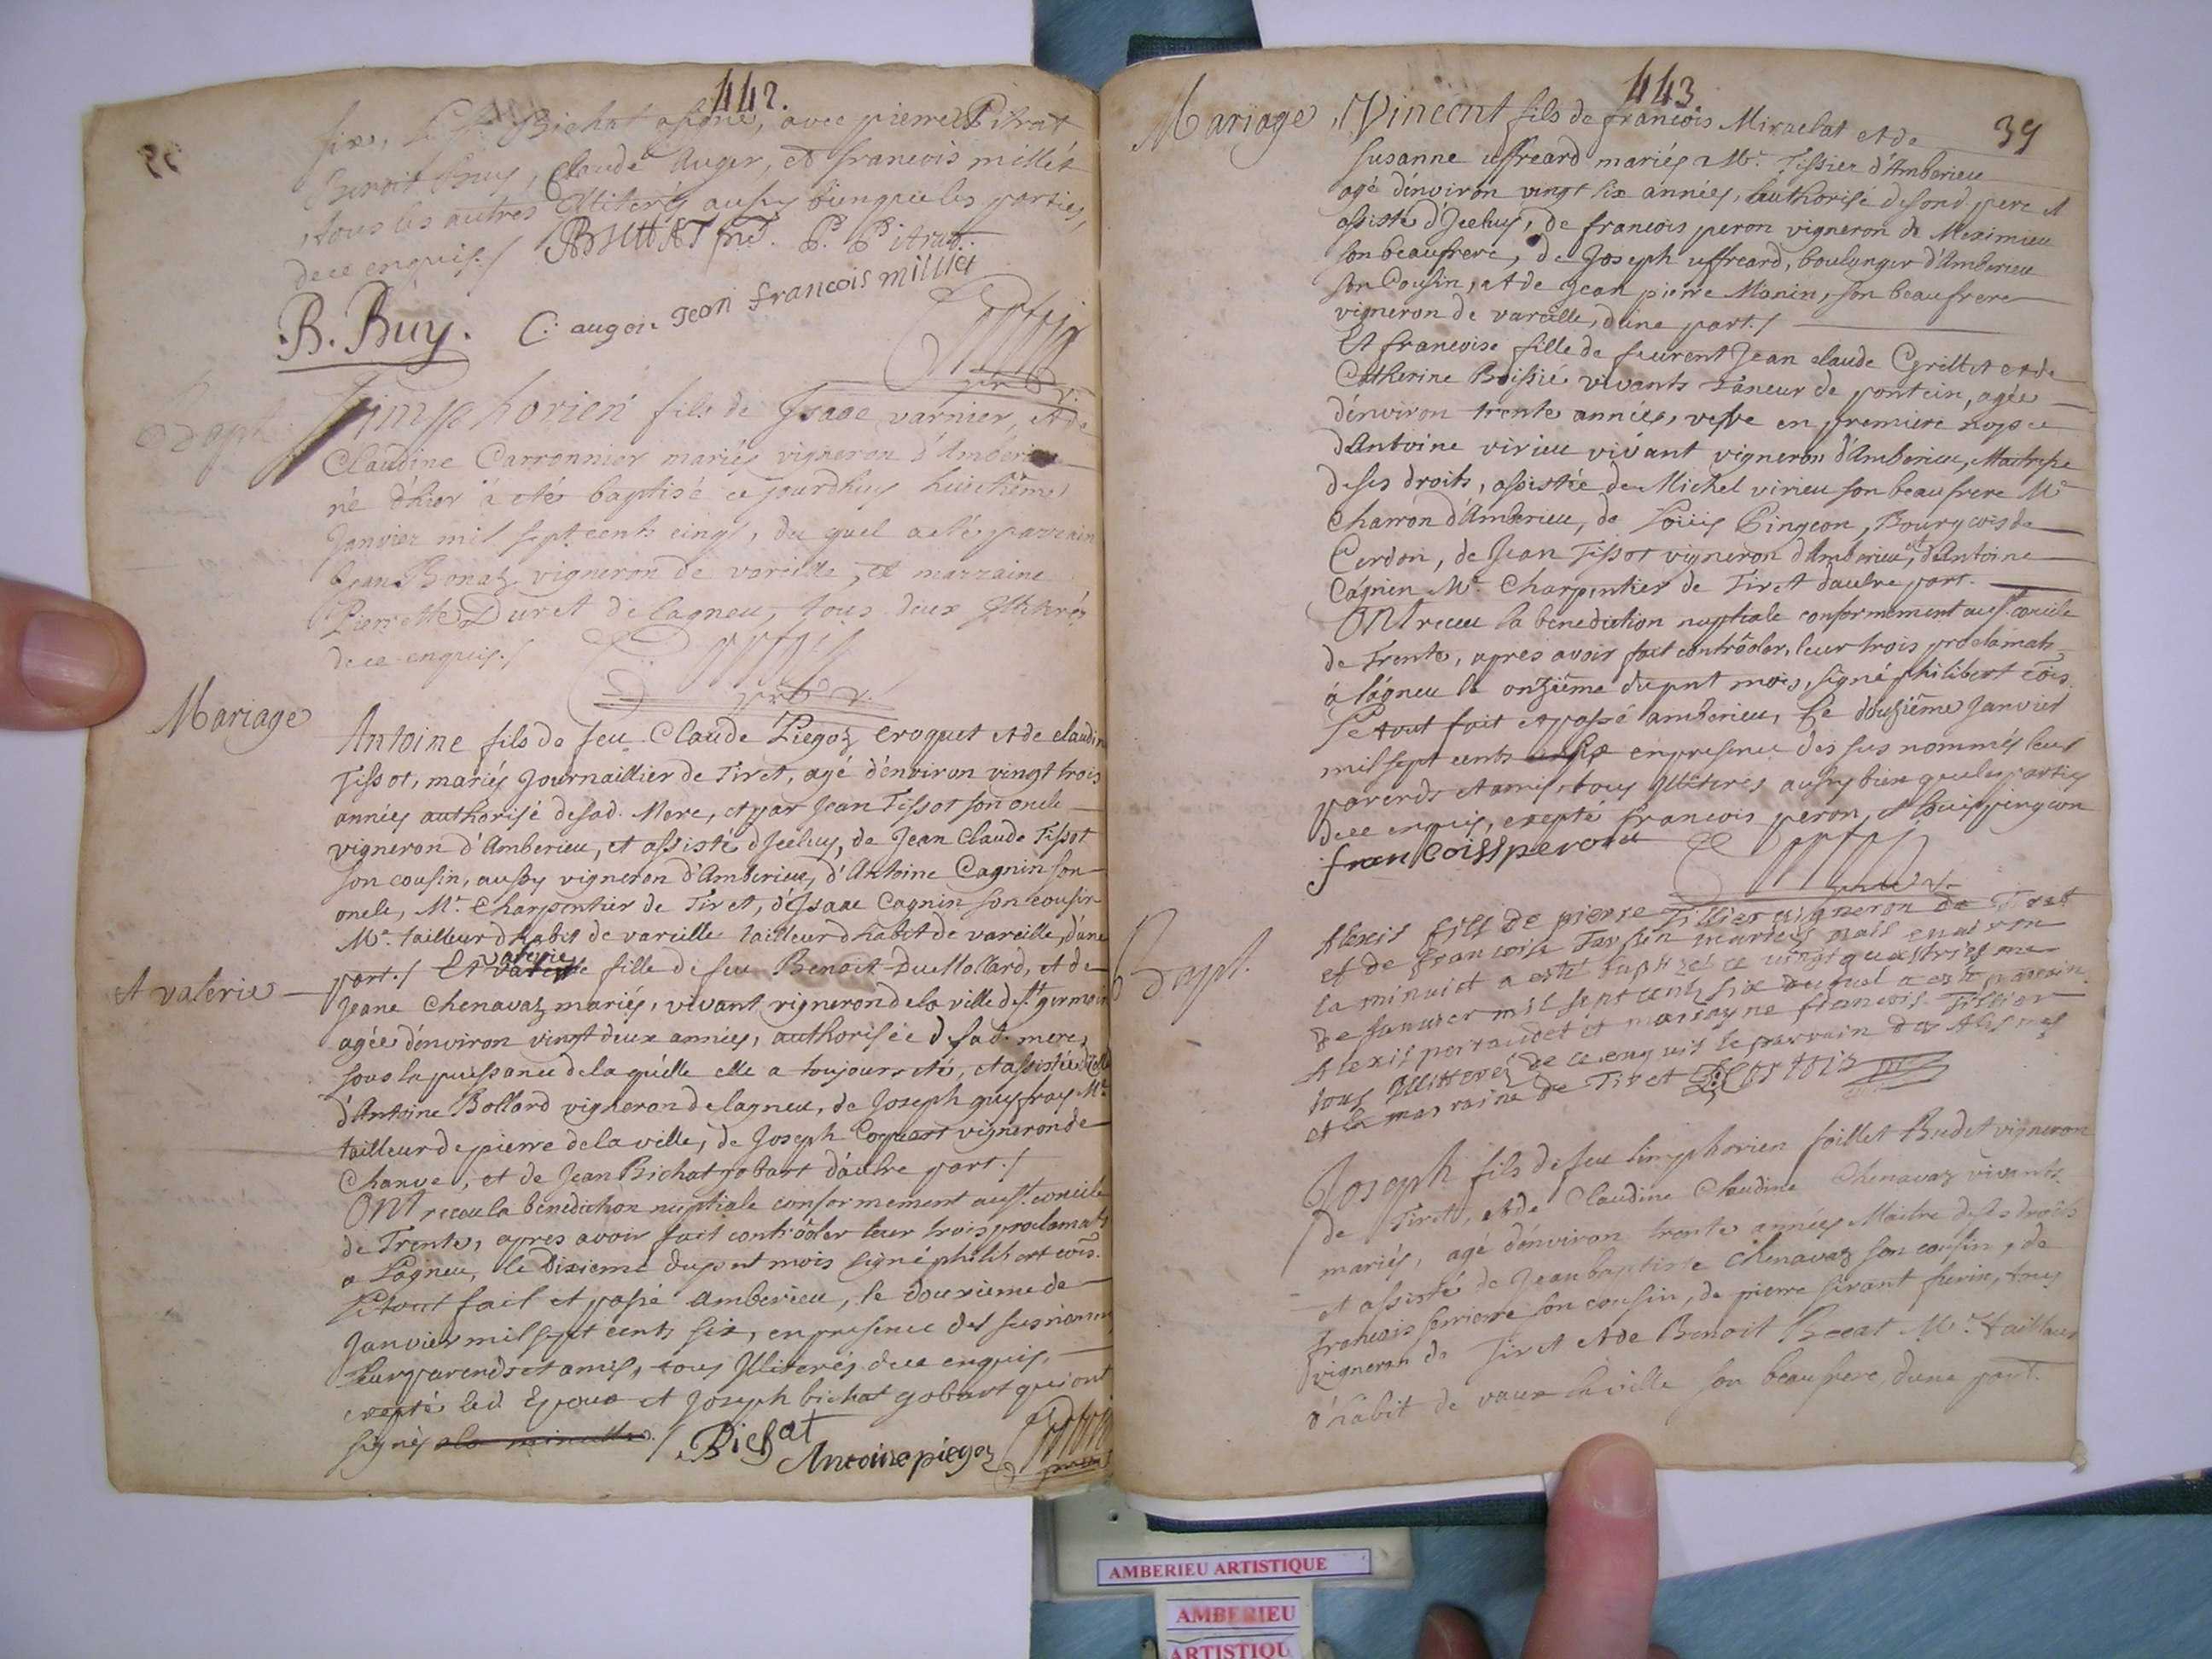 442.
six, le Sr. Bichat assiné, avec pierre Pitrat
Benoit Buy, Claude Auger, et francois millét
tous les autres illiterés aussy bien que les parties,
de ce enquis./ BICHAT P. Pitrat.
B. Buy. C. augere Jean francois millet
Bapt.
Simphorien fils de Isaac varnier, et de
Claudine Carronnier mariés vigneron d'Amberieu
né d'hier à eté baptisé ce jourdhuy huictième
Janvier mil sept cents cinq, du quel a eté parrain
Jean Bonaz vigneron de vareille, et marraine
Pierrette Duret de lagneu, tous deux illiterés
de ce enquis./
Mariage
Antoine fils de feu Claude Piegoz croquet et de claudine
Tissot, mariés Journaillier de Tiret, agé d'environ vingt trois
années authorisé de sad. Mere, et par Jean Tissot son oncle
vigneron d'Amberieu, et assisté d'Jceluy, de Jean Claude Tissot
son cousin, aussy vigneron d'Amberieu, d'Antoine Cagnin son
oncle, Mr. Charpentier de Tiret, d'Isaac Cagnin son cousin
Mr. tailleur d'habit de vareille tailleur d'habit de vareille, d'une
part./ Et valerie fille de feu Benoit Duollard, et de
Et valerie
Jeane Chenavaz mariés, vivant vigneron de la ville de St. germain
agée d'environ vingt deux années, authorisée de sad. mere,
sous la puissance de la quelle elle a toujours eté, et assistée d'icelle
d'Antoine Bollard vigneron de lagneu, de Joseph guyfray Mr.
tailleur de pierre de la ville, de Joseph Coquart vigneron de
Chanve, et de Jean Bichat gobart d'aultre part./
ONt receu la benediction nuptiale conformement au St. concile
de Trente, apres avoir fait contrôoler leur trois proclamats
a Lagneu, le Dixieme du pnt mois signé philibert cois.
Le tout fait et passé amberieu, le douxieme de
Janvier mil sept cents six, en presence des susnommés
leur parends et amis, tous Illiterés de ce enquis,
exepté led. Epoux et Joseph bichat gobart qui ont
signés a la minutte./ Bichat
Antoine piegoz
443
39
Mariage
Vincent fils de francois Miraclat et de
susanne uffreard mariés Mr. Tissier d'Amberieu
agé d'environ vingt six années, authorisé de sond. pere et
assisté d'Jceluy, de francois peron vigneron de Meximieu
son beaufrere, de Joseph uffreard, boulanger d'Amberieu
son Cousin, et de Jean pierre Monin, son beaufrere
vigneron de vareille, d'une part./
Et francoise fille de feurent Jean claude Grillet et de
Catherine Boissié vivants Taneur de pontcin, agée
d'environ trente années, vefve en premiere nopce
d'Antoine virieu vivant vigneron d'Amberieu, Maitresse
de ses droits, assistée de Michel virieu son beaufrere Mr.
Charron d'Amberieu, de Loüis Pingeon, Bourgeois de
Cerdon, de Jean Tissot vigneron d'Amberieu, et d'Antoine
Cagnin Mr. Charpentier de Tiret d'aultre part.
ONt receu la benediction nuptiale conformement au St. concile
de Trente, apres avoir fait contrôoler, leur trois proclamats
à lagneu le onzième du pnt mois, signé philibert cois
Le tout fait et passé amberieu, Le douzième Janvier
mil sept cents six en presence des sus nommés leur
parends et amis, tous Illiterés aussy bien que les parties
de ce enquis, exepté francois peron, et louis pingeon
francoiss peron
Bapt.
Alexis fils de pierre Tillier vigneron de Tiret
et de francoise mariés nais environ
la minuict a esté baptizé ce vingt quatriesme
de Januier mil sept cents six duquel a esté parrain
Alexis portaudet et marrayne francoise Tillier
tous Illitterés de ce enquis le parrain des Alismes
et la marraine de Tiret
Joseph fils de feu simphorien foillet Budet vigneron
de Tiret, et de Claudine Claudine Chenavaz vivants
mariés, agé d'environ trente années Maitre de ses droits
et assisté de Jean baptiste Chenavaz son cousin, de
francois serriere son cousin, de pierre sirant furin, tous
vigneron de Tiret et de Benoit Bocat Mr. tailleur
d'habit de vaux la ville son beaufrere d'une part.
AMBERIEU ARTISTIQUE
AMBERIEU
ARTISTIQU